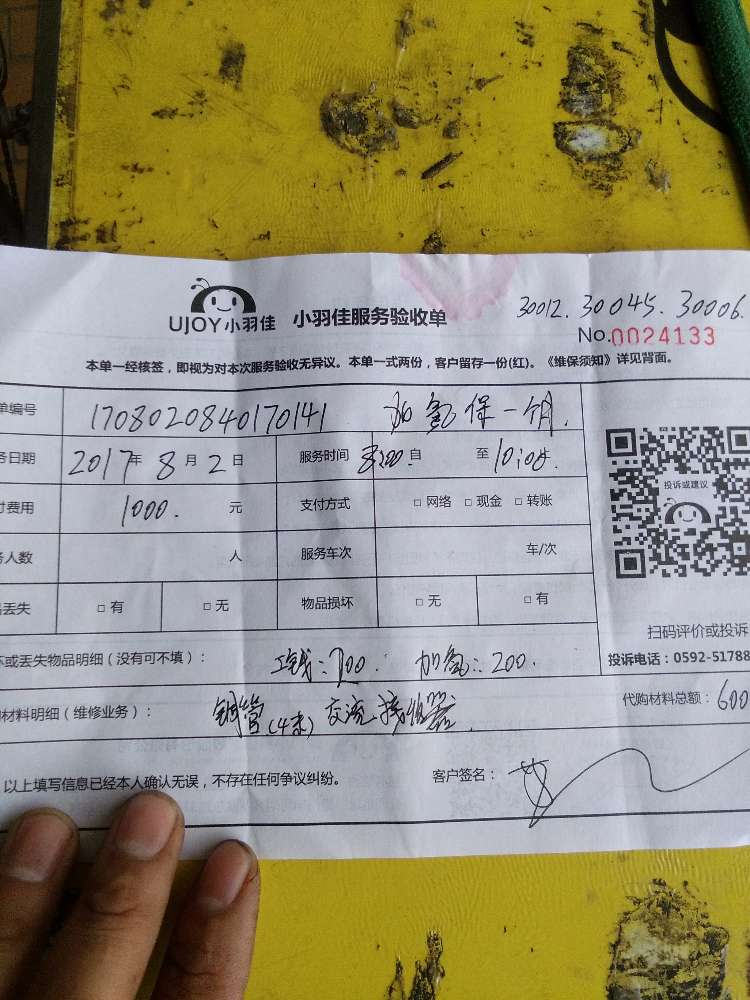 30012. 30045. 30006.
UJOY小羽佳 小羽佳服务验收单
No.0024133
本单一经核签，即视为对本次服务验收无异议。本单一式两份，客户留存一份(红)。《维保须知》详见背面。
单编号 1708020840170141 加氟保一个月.
务日期 2017年8月2日 服务时间 8:00自 至10:00
付费用 1000. 元 支付方式 □ 网络 □ 现金 □ 转账
务人数 人 服务车次 车/次
丢失 □ 有 □ 无 物品损坏 □ 无 □ 有
投诉或建议
扫码评价或投诉
坏或丢失物品明细（没有可不填）： 工钱：200. 加氟：200.
投诉电话：0592-51788
材料明细（维修业务）： 铜管(4末) 交流接触器.
代购材料总额：600
以上填写信息已经本人确认无误，不存在任何争议纠纷。 客户签名：